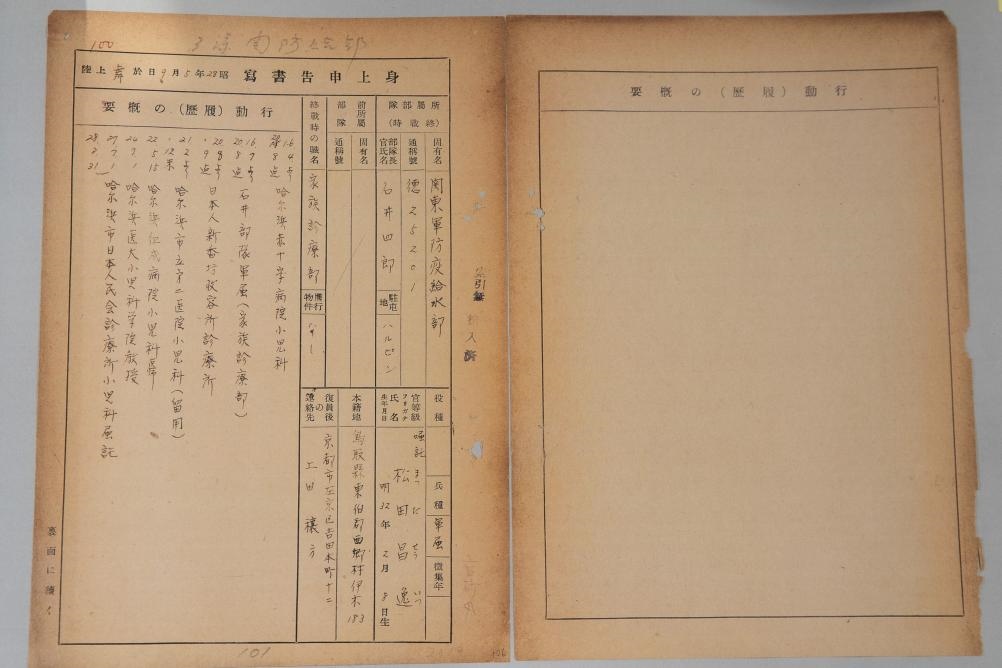 100
身上申告書寫 昭28年5月9日於舞 上陸
所屬部隊(終戰時)
固有名 関東軍防疫給水部
通稱號 徳25201
部隊長官氏名 石井四郎
駐屯地 ハルピン
前所屬部隊
固有名
通稱號
終戰時の職名 家族診療部
携行物件 なし
役種
兵種 軍属
徴集年
官等級 嘱託
フリガナ まつだ せういつ
氏名 松田昌逸
生年月日 明32年2月8日生
本籍地 鳥取縣東伯郡西郷村伊木183
復員後の連絡先 京都市左京区吉田本町十二
上田穰方
行動(履歴)の概要
16 4 哈尓浜赤十字病院小児科
16 7 石井部隊軍属(家族診療部)
20 8 日本人新香坊収容所診療所
21 2 哈尓浜市立第二医院小児科(留用)
22 5 15 哈尓浜仁成病院小児科
24 7 1 哈尓浜医大小児科学院教授
27 7 1 哈尓浜市日本人民会診療所小児科属託
28 2 31
裏面に續く
101
106
行動(履歴)の概要